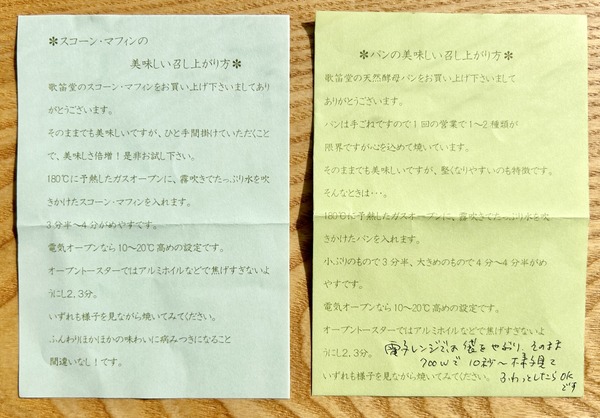 ✽スコーン・マフィンの
美味しい召し上がり方✽
歌笛堂のスコーン・マフィンをお買い上げ下さいましてあり
がとうございます。
そのままでも美味しいですが、ひと手間掛けていただくこと
で、美味しさ倍増！是非お試し下さい。
180℃に予熱したガスオーブンに、霧吹きでたっぷり水を吹
きかけたスコーン・マフィンを入れます。
3分半～4分がめやすです。
電気オーブンなら10～20℃高めの設定です。
オーブントースターではアルミホイルなどで焦げすぎないよ
うにし2，3分。
いずれも様子を見ながら焼いてみてください。
ふんわりほかほかの味わいに病みつきになること
間違いなし！です。
✽パンの美味しい召し上がり方✽
歌笛堂の天然酵母パンをお買い上げ下さいまして
ありがとうございます。
パンは手ごねですので1回の営業で1～2種類が
限界ですが心を込めて焼いています。
そのままでも美味しいですが、堅くなりやすいのも特徴です。
そんなときは・・・。
180℃に予熱したガスオーブンに、霧吹きでたっぷり水を吹
きかけたパンを入れます。
小ぶりのもので3分半、大きめのもので4分～4分半がめ
やすです。
電気オーブンなら10～20℃高めの設定です。
オーブントースターではアルミホイルなどで焦げすぎないよ
うにし2，3分。
いずれも様子を見ながら焼いてみてください。
電子レンジでは袋をやぶり、そのまま
700Wで10秒～様子見て
ふわっとしたらOK
です